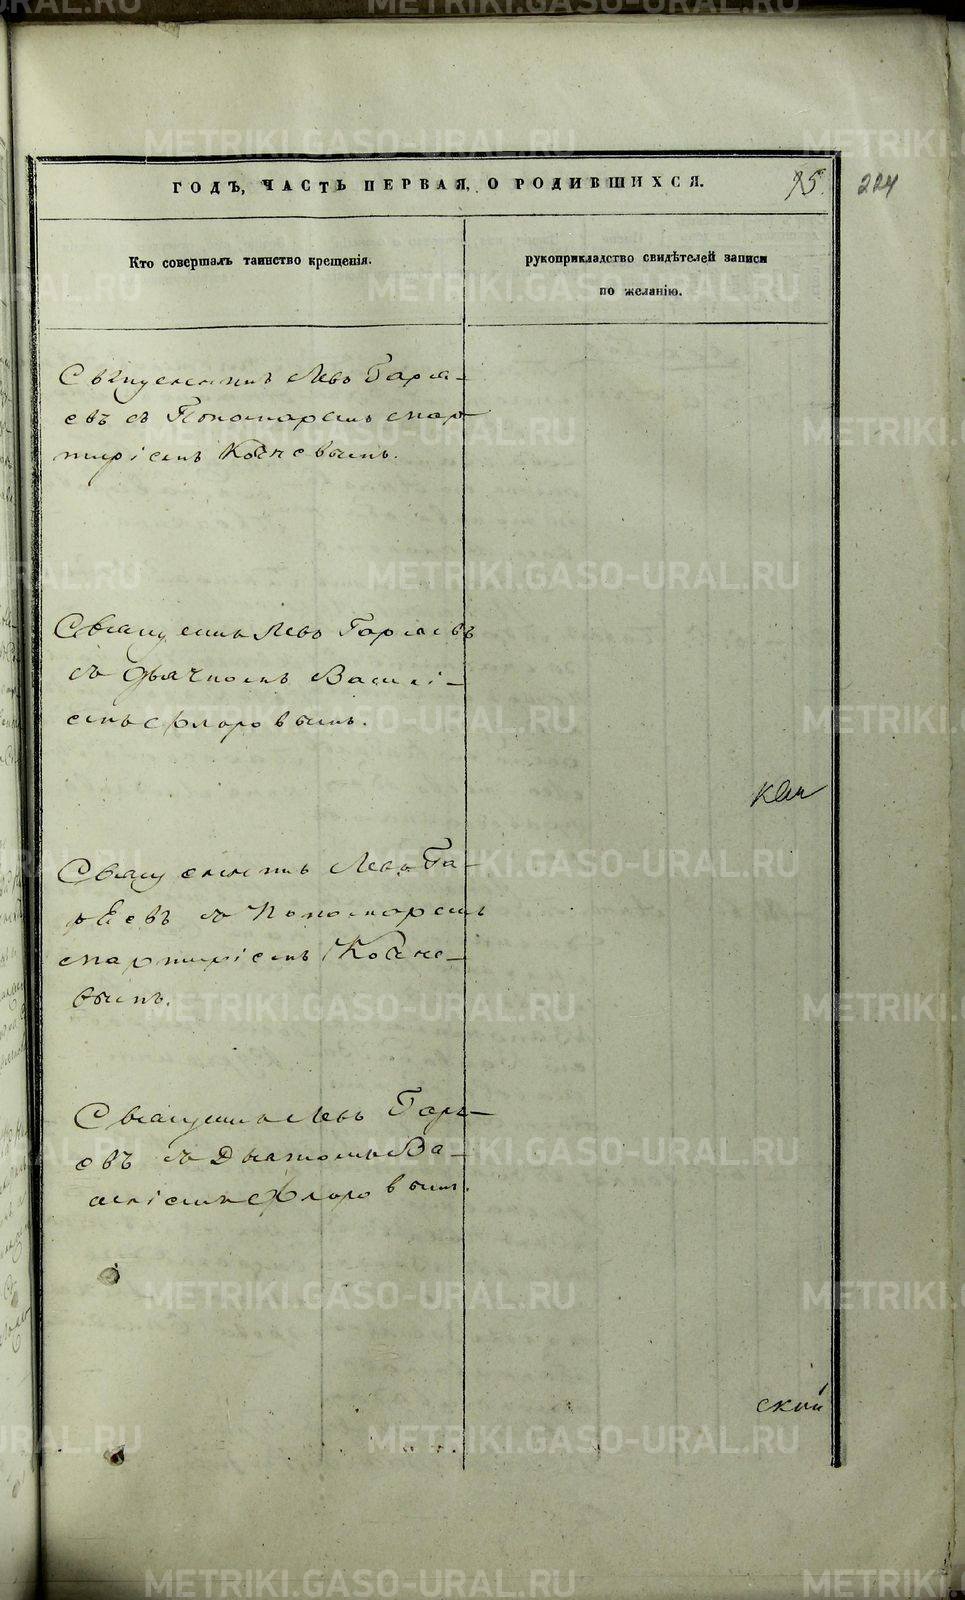 ГОДЪ, ЧАСТЬ ПЕРВАЯ, О РОДИВШИХСЯ.
75.
224
Кто совершалъ таинство крещенія.
рукоприкладство свидѣтелей записи
по желанію.
Священникъ Левъ Гаря-
евъ съ Пономаремъ Мар-
тиріемъ Кочневымъ.
Священникъ Левъ Гаряевъ
съ Дьячкомъ Василі-
емъ Флоровымъ.
Священникъ Левъ Га-
ряевъ съ Пономаремъ
Мартиріемъ Кочне-
вымъ.
Священникъ Левъ Гаря-
евъ съ Дьячкомъ Ва-
силіемъ Флоровымъ.
скій
METRIKI.GASO-URAL.RU